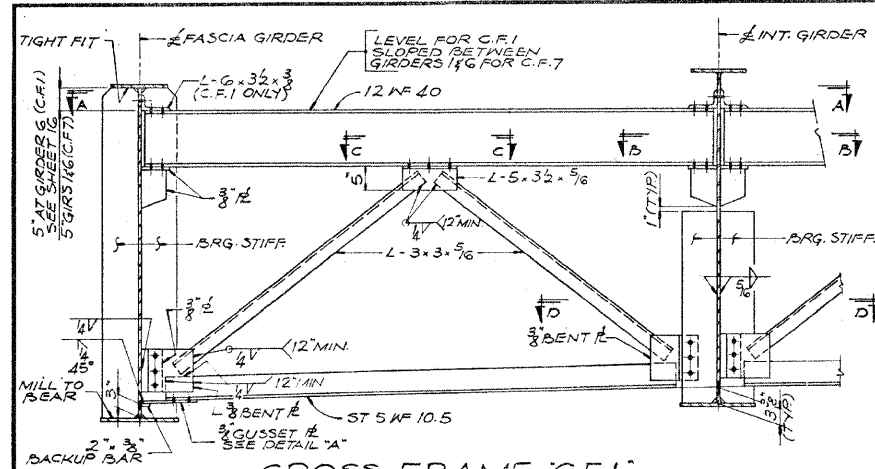 TIGHT FIT
℄ FASCIA GIRDER
LEVEL FOR C.F.1
SLOPED BETWEEN
GIRDERS 1&6 FOR C.F.7
℄ INT. GIRDER
L-6 x 3½ x ⅜
(C.F.1 ONLY)
12 WF 40
A
A
5" AT GIRDER 6 (C.F.1)
SEE SHEET 16
5" GIRS 1&6 (C.F.7)
C
C
B
B
5"
L-5 x 3½ x 5/16
⅜" ℄
1" (TYP.)
¼
12" MIN.
BRG. STIFF.
L-3 x 3 x 5/16
BRG. STIFF.
5/16
⅜" ℄
D
D
¼
¼
45°
12" MIN.
¼
⅜" BENT ℄
12" MIN
¼
MILL TO
BEAR
3"
⅜" BENT ℄
ST 5 WF 10.5
⅜" GUSSET ℄
SEE DETAIL "A"
2" x ⅜"
BACKUP BAR
(TYP.)
CROSS FRAME "C.F.1"